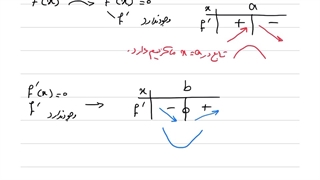 f'(x) = 0
f' وجود ندارد
x a
f' + −
تابع در x=a ماکزیمم دارد.
f'(x) = 0
f' وجود ندارد
x b
f' − 0 +